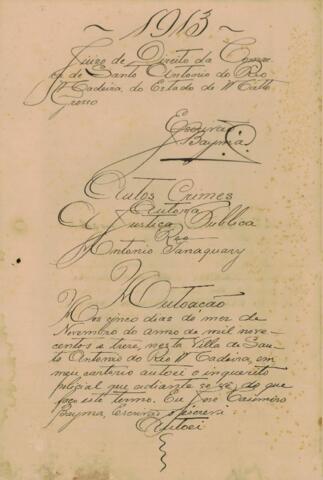 ~ 1913 ~
Juizo de Direito da Comar
ca de Santo Antonio do Rio
Madeira, do Estado de Matto
Grosso
Escrivão
Bayma
Autos Crimes
Autora
A Justiça Publica
Reo
Antonio Panaguary
Autoação
Aos cinco dias do mez de
Novembro do anno de mil nove-
centos e trese, nesta Villa de San-
to Antonio do Rio Madeira, em
meu cartorio autoei o inquerito
policial que adiante se vê, do que
faço este termo. Eu José Casimiro
Bayma, escrivão o escrevi
Autoei